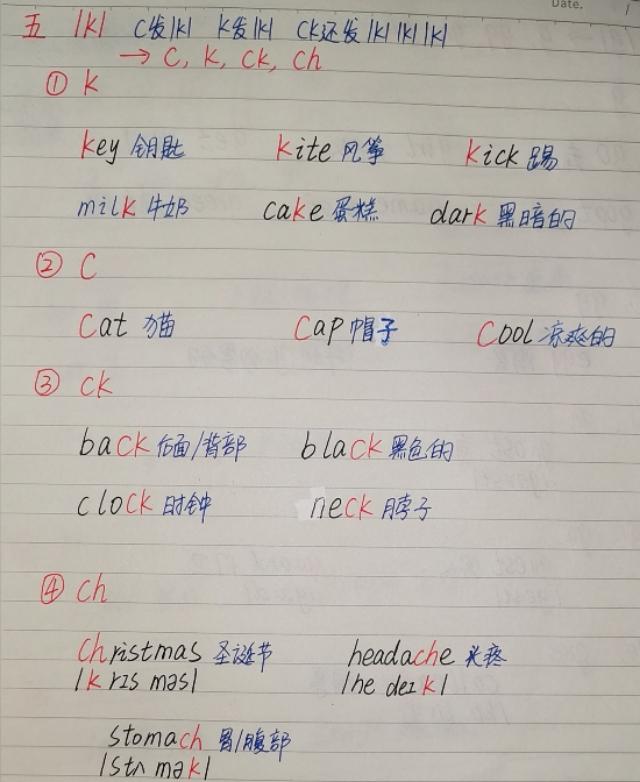 Date.
五 |k| C发|k| k发|k| Ck还发|k||k||k|
→ C, k, Ck, Ch
① k
key 钥匙 kite 风筝 kick 踢
milk 牛奶 cake 蛋糕 dark 黑暗的
② C
Cat 猫 Cap 帽子 Cool 凉爽的
③ ck
back 后面/背部 black 黑色的
clock 时钟 neck 脖子
④ ch
Christmas 圣诞节 headache 头疼
|krɪs məs| |he deɪk|
stomach 胃/腹部
|stʌ mək|